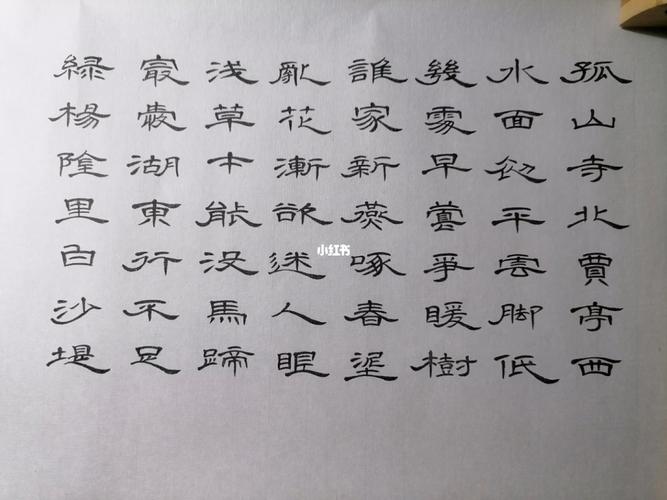 孤山寺北賈亭西
水面初平雲脚低
幾處早鶯爭暖樹
誰家新燕啄春埿
亂花漸欲迷人眼
浅草才能没馬蹄
最愛湖東行不足
緑楊陰里白沙堤
小红书